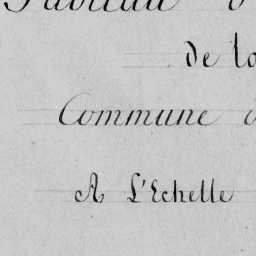 Tableau
de la
Commune
A L'Echelle